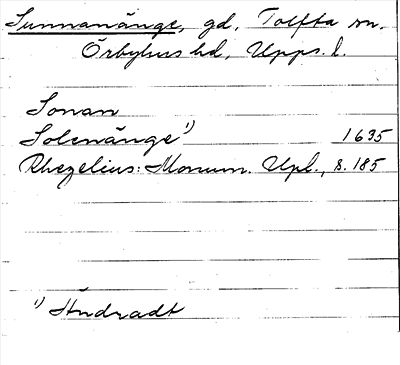 Sunnanänge, gd, Tolfta sn.
Örbyhus hd, Upps. l.
Sonan
Solenänge¹⁾ 1635
Rhezelius: Monum. Upl., s. 185
¹⁾ Ändradt